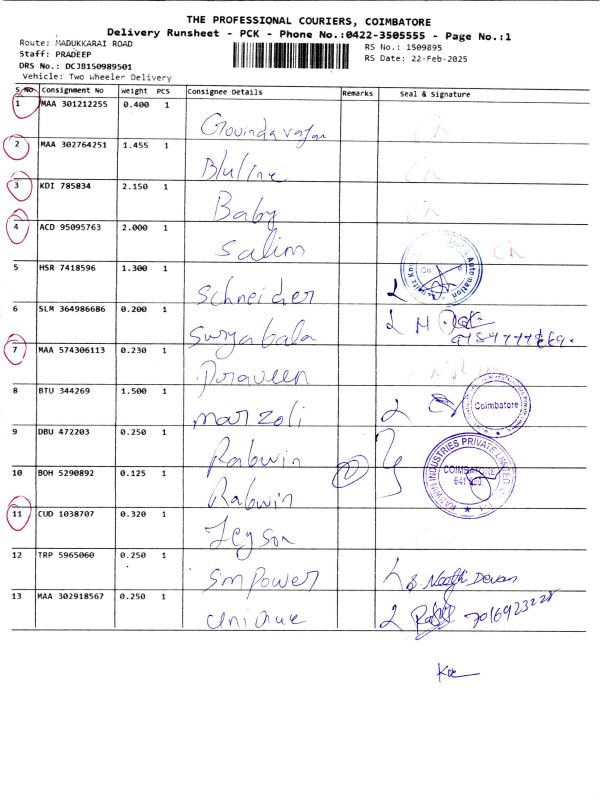 THE PROFESSIONAL COURIERS, COIMBATORE
Delivery Runsheet - PCK - Phone No.:0422-3505555 - Page No.:1
Route: MADUKKARAI ROAD
RS No.: 1509895
Staff: PRADEEP
RS Date: 22-Feb-2025
DRS No.: DCJB150989501
Vehicle: Two Wheeler Delivery
S No Consignment No Weight PCS Consignee Details Remarks Seal & Signature
1 MAA 301212255 0.400 1 Govindarajan
2 MAA 302764251 1.455 1 Bluline
3 KDI 785834 2.150 1 Baby
4 ACD 95095763 2.000 1 Salim
5 HSR 7418596 1.300 1 Schneider
6 SLM 364986686 0.200 1 Suryabala
7 MAA 574306113 0.230 1 Praveen
8 BTU 344269 1.500 1 Marzoli Coimbatore
9 DBU 472203 0.250 1 Rabwin
10 BOH 5290892 0.125 1 Rabwin 2 RABWIN INDUSTRIES PRIVATE LIMITED COIMBATORE
11 CUD 1038707 0.320 1 Jeyson
12 TRP 5965060 0.250 1 Sm Power
13 MAA 302918567 0.250 1 Unique 7016923228